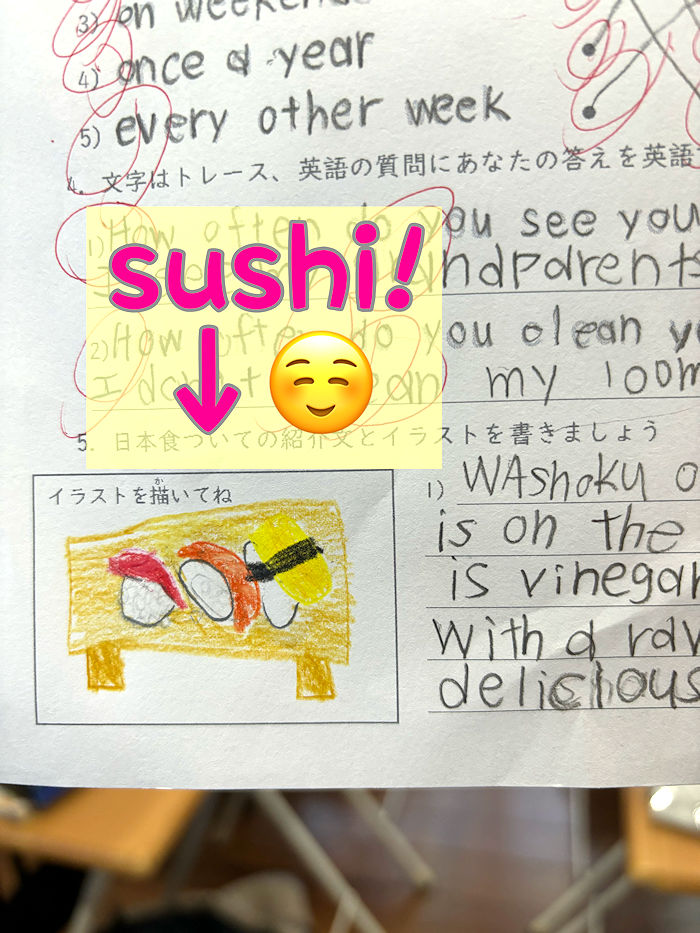 3) on weekends
4) once a year
5) every other week
4. 文字はトレース、英語の質問にあなたの答えを英語
1) How often do you see you
I see my grandparents
sushi!
2) How often do you clean y
I don't clean my room
5. 日本食ついての紹介文とイラストを書きましょう
イラストを描いてね
か
1) WAshoku o
is on the
is vinegar
with a raw
delicious